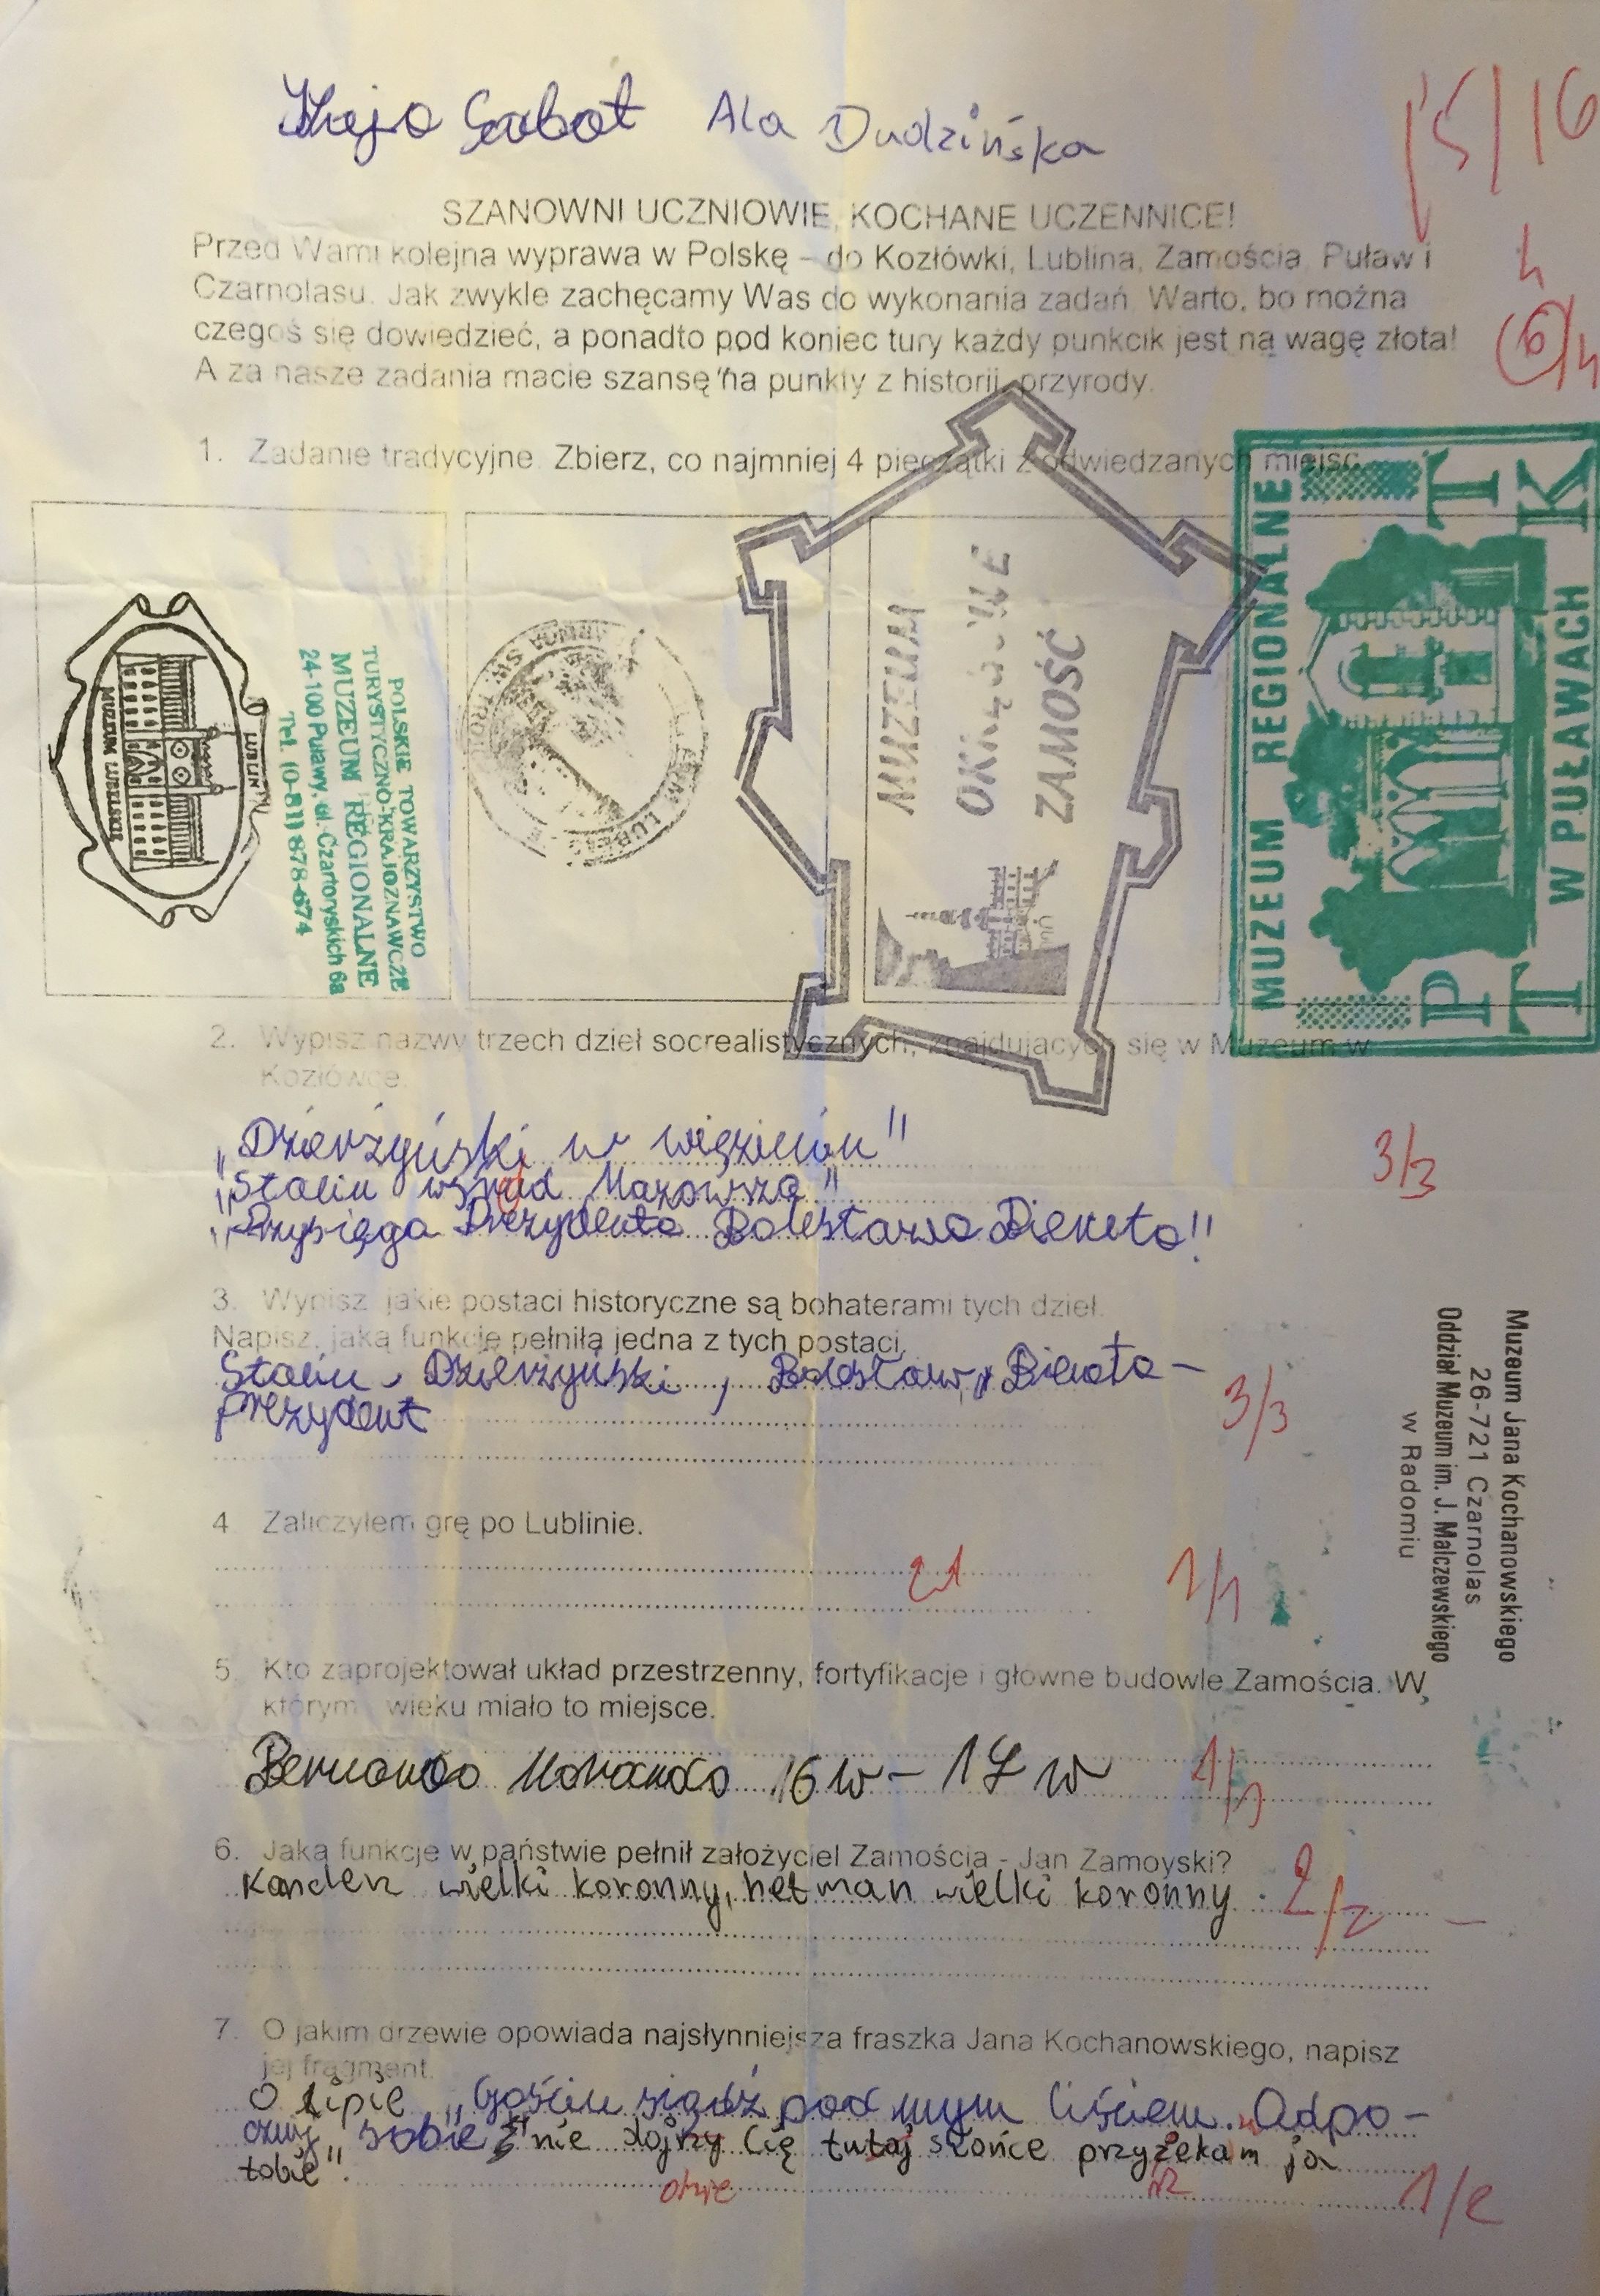 Ala Dudzińska
15/16
SZANOWNI UCZNIOWIE, KOCHANE UCZENNICE!
Przed Wami kolejna wyprawa w Polskę – do Kozłówki, Lublina, Zamościa, Puław i
Czarnolasu. Jak zwykle zachęcamy Was do wykonania zadań. Warto, bo można
czegoś się dowiedzieć, a ponadto pod koniec tury każdy punkcik jest na wagę złota!
A za nasze zadania macie szansę na punkty z historii, przyrody.
4
6/4
1. Zadanie tradycyjne. Zbierz, co najmniej 4 pieczątki z odwiedzanych miejsc.
LUBLIN
MUZEUM LUBELSKIE
POLSKIE TOWARZYSTWO
TURYSTYCZNO-KRAJOZNAWCZE
MUZEUM REGIONALNE
24-100 Puławy, ul. Czartoryskich 6a
Tel. (0-81) 878-674
MUZEUM
OKRĘGOWE
ZAMOŚĆ
MUZEUM REGIONALNE
PTTK
W PUŁAWACH
2. Wypisz nazwy trzech dzieł socrealistycznych, znajdujących się w Muzeum w
Kozłówce.
„Dzierżyński w więzieniu"
„Stalin wśród Mazowsza"
„Przysięga Prezydenta Bolesława Bieruta"
3/3
3. Wypisz, jakie postaci historyczne są bohaterami tych dzieł.
Napisz, jaką funkcję pełniła jedna z tych postaci.
Stalin, Dzierżyński, Bolesław Bieruta –
prezydent
3/3
Muzeum Jana Kochanowskiego
26-721 Czarnolas
Oddział Muzeum im. J. Malczewskiego
w Radomiu
4. Zaliczyłem grę po Lublinie.
1/1
5. Kto zaprojektował układ przestrzenny, fortyfikacje i główne budowle Zamościa. W
którym wieku miało to miejsce.
Bernardo Morando 16 w – 17 w
1/1
6. Jaką funkcje w państwie pełnił założyciel Zamościa - Jan Zamoyski?
Kanclerz wielki koronny, hetman wielki koronny.
2/2
7. O jakim drzewie opowiada najsłynniejsza fraszka Jana Kochanowskiego, napisz
jej fragment.
O lipie „Gościu siądź pod mym liściem. Odpo-
cznij sobie nie dojrzy Cię tutaj słońce przyżekam ja
tobie".
rz
1/2